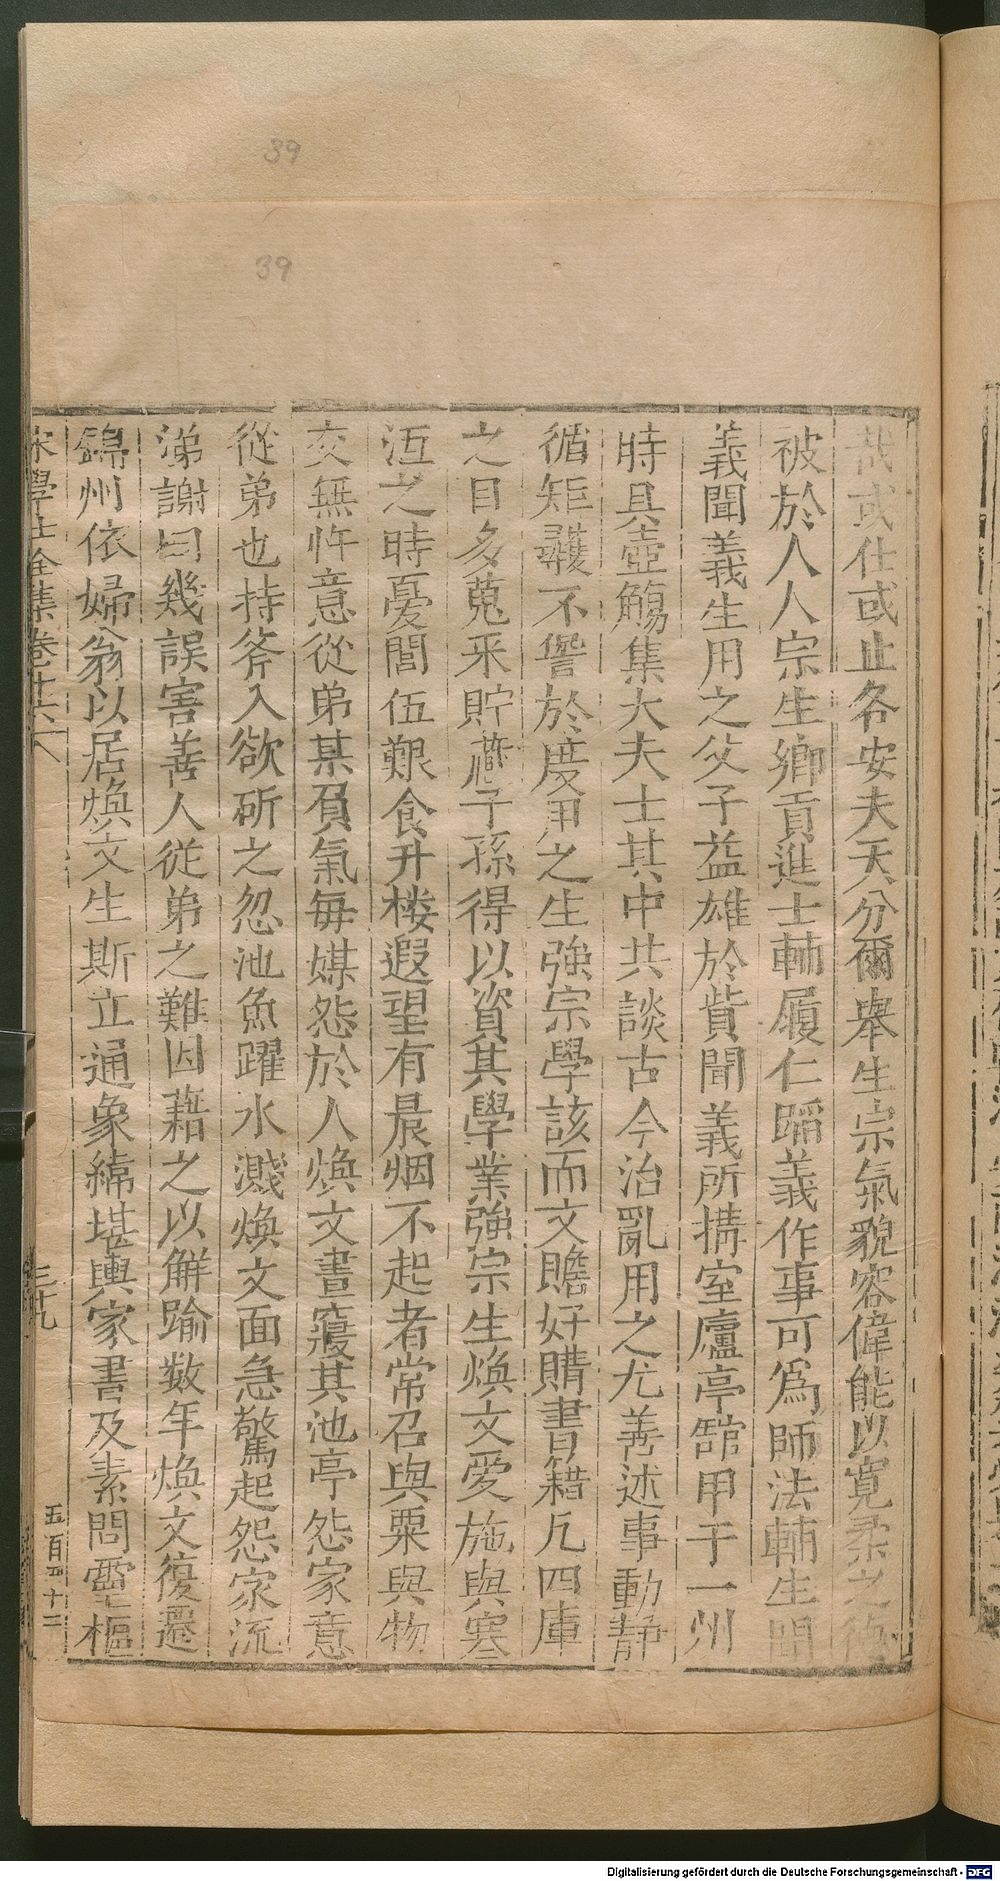 39
39
哉或仕或止各安夫天分爾舉生宗氣貌容偉能以寬柔之德
被於人人宗生鄉貢進士輔履仁蹈義作事可爲師法輔生聞
義聞義生用之父子益雄於貲聞義所搆室廬亭館甲于一州
時具壺觴集大夫士其中共談古今治亂用之尤善述事動靜
循矩彠不諐於度用之生強宗學該而文贍好購書籍凡四庫
之目多蒐釆貯藏子孫得以資其學業強宗生煥文愛施與寒
沍之時憂閭伍艱食升楼遐望有晨烟不起者常召與粟與物
交無忤意從弟某負氣每媒怨於人煥文晝寢其池亭怨家意
從弟也持斧入欲斫之忽池魚躍水濺煥文面急驚起怨家流
涕謝曰幾誤害善人從弟之難因藉之以觧踰数年煥文復遷
錦州依婦翁以居煥文生斯立通象緯堪輿家書及素問靈樞
宋學士全集卷廿六
三十九
五百四十二
Digitalisierung gefördert durch die Deutsche Forschungsgemeinschaft - DFG